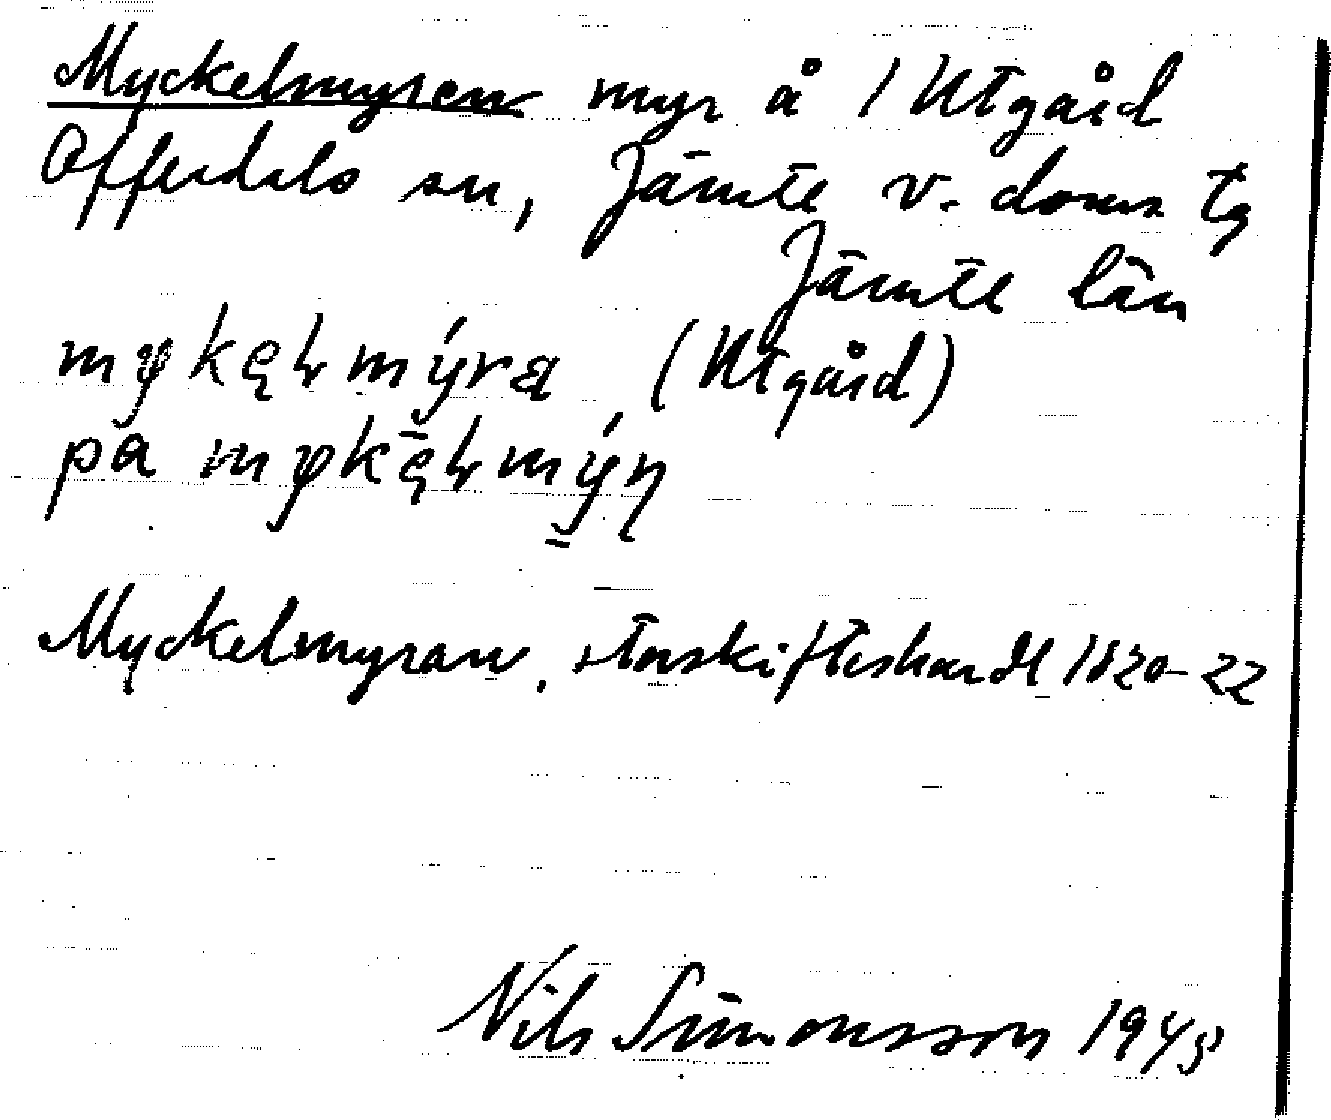 Myckelmyren myr å 1 Utgård
Offerdals sn, Jämte v. doms tg
Jämte län
mykęlmýra (Utgård)
pa mykęlmýn
Myckelmyran, storskifteshandl 1820-22
Nils Simonsson 1943